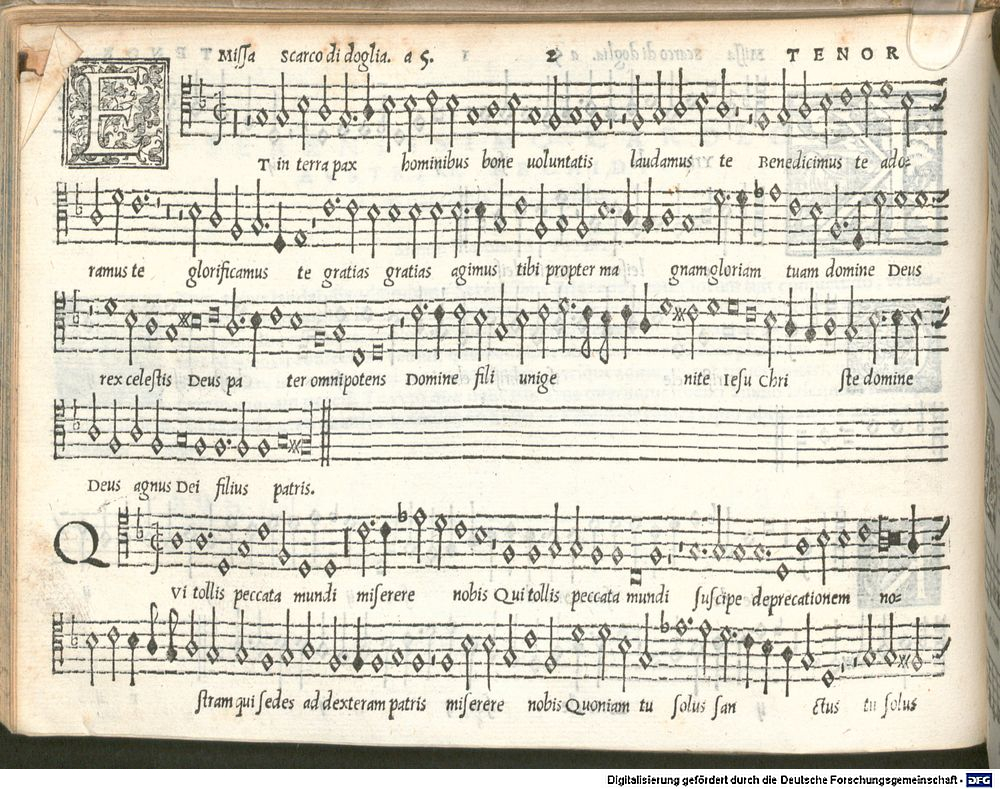 Missa scarco di doglia. a 5. 2 TENOR
ET in terra pax hominibus bone uoluntatis laudamus te Benedicimus te ado-
ramus te glorificamus te gratias gratias agimus tibi propter ma gnam gloriam tuam domine Deus
rex celestis Deus pa ter omnipotens Domine fili unige nite Iesu Chri ste domine
Deus agnus Dei filius patris.
QVi tollis peccata mundi miserere nobis Qui tollis peccata mundi suscipe deprecationem no-
stram qui sedes ad dexteram patris miserere nobis Quoniam tu solus san ctus tu solus
Digitalisierung gefördert durch die Deutsche Forschungsgemeinschaft - DFG